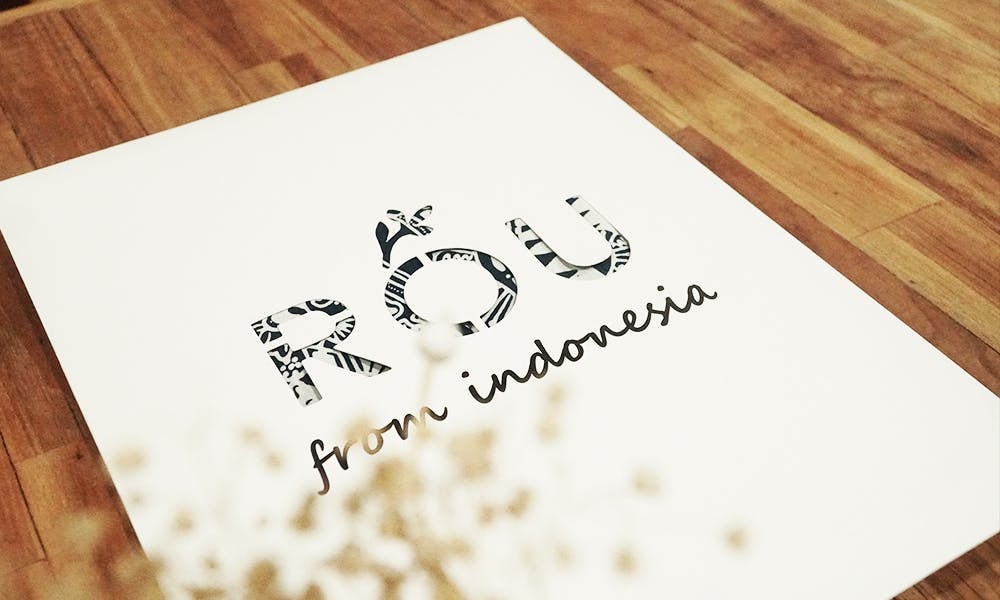 ROU
from indonesia